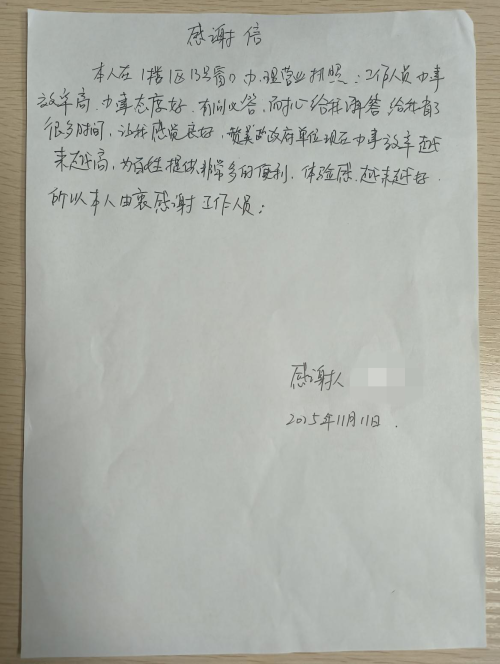 感谢信
本人在1楼1区13号窗口办理营业执照；工作人员办事
效率高.办事态度好.有问必答.耐心给我解答给我省了
很多时间，让我感觉良好，赞美政府单位现在办事效率越
来越高，为百姓提供非常多的便利.体验感.越来越好.
所以本人由衷感谢工作人员；
感谢人
2025年11月11日.